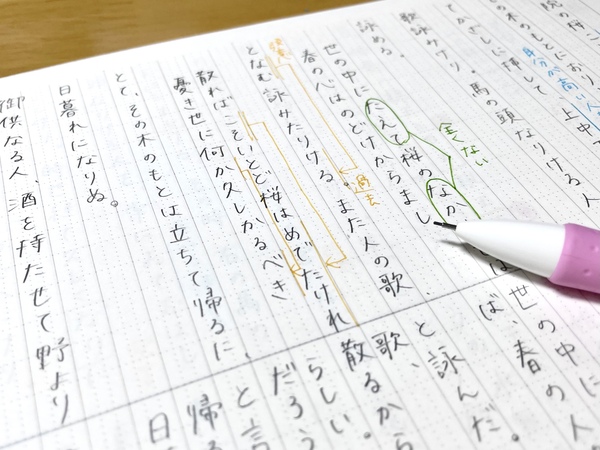 の木のもとにおり
身分が高い人
てかざしに挿して
上中
歌詠みけり。馬の頭なりける人
詠める。
世の中にたえて桜のなか
全くない
春の心はのどけからまし
となむ詠みたりける。また人の歌、
過去
散ればこそいとど桜はめでたけれ
憂き世に何か久しかるべき
とて、その木のもとは立ちて帰るに、
日暮れになりぬ。
御供なる人、酒を持たせて野より
世の中に
ば、春の
と、詠んだ。
歌
散るから
らしい。
だろう
と言
帰る
日